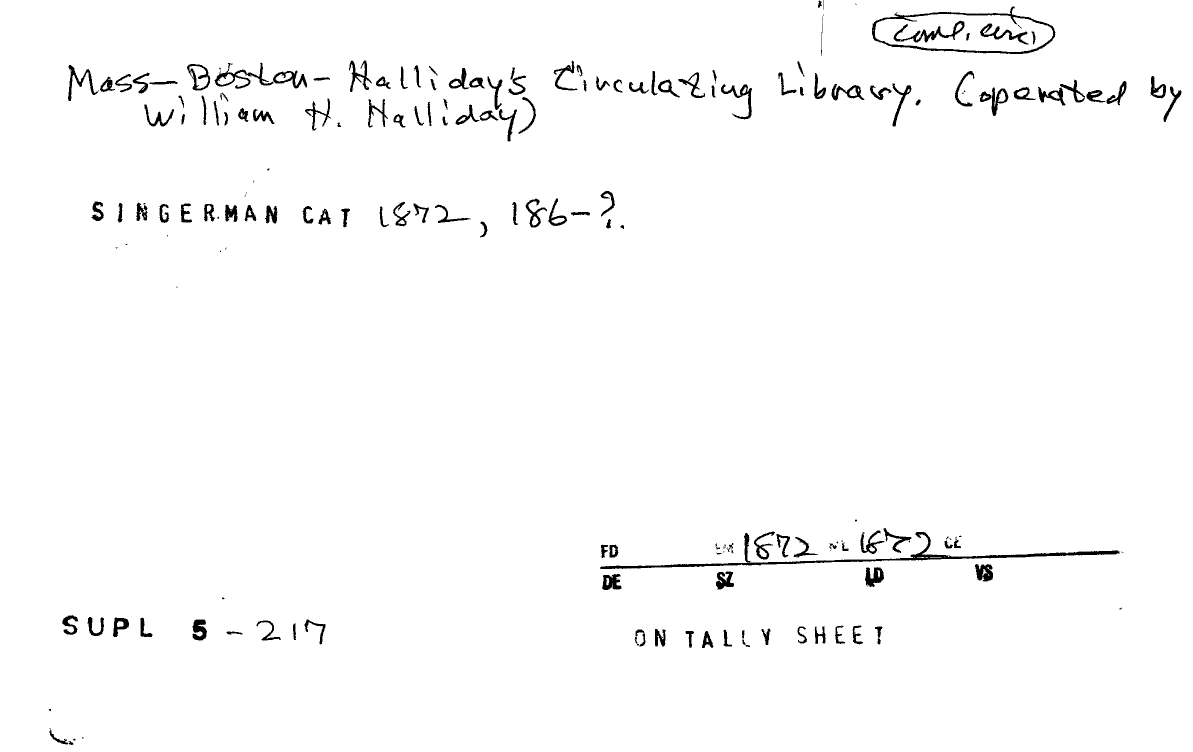 Comm. circ.
Mass—Boston—Halliday's Circulating Library. (operated by
William H. Halliday)
SINGERMAN CAT 1872, 186-?.
FD EM 1872 NL 1872 CE
DE SZ LD VS
SUPL 5 - 217
ON TALLY SHEET